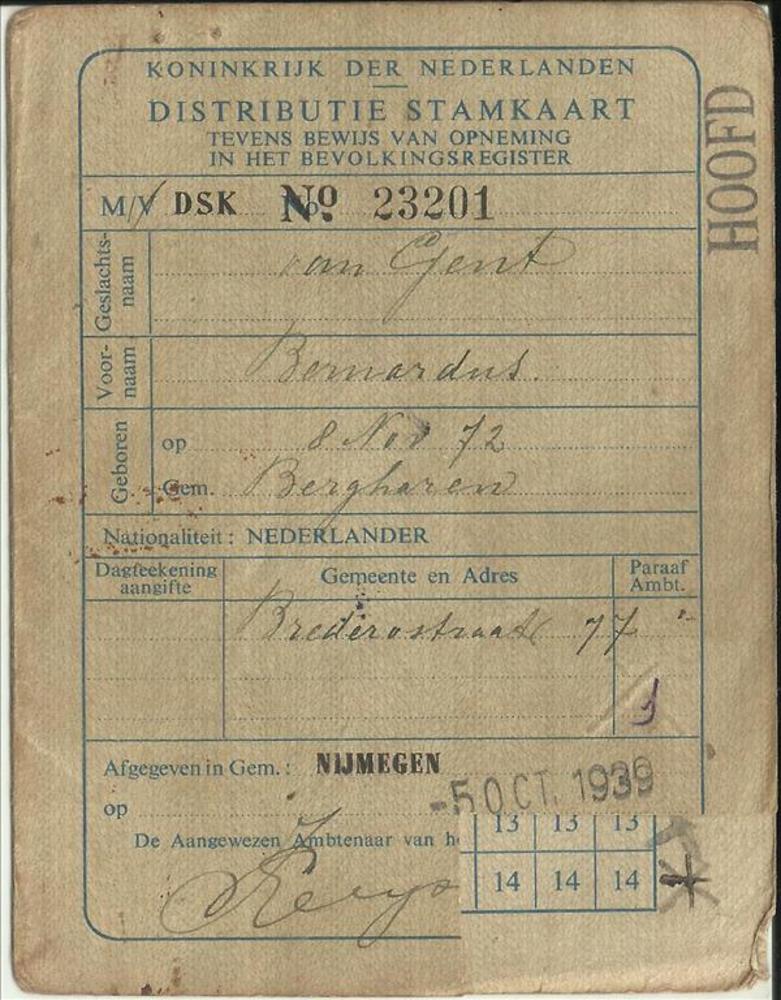 KONINKRIJK DER NEDERLANDEN
DISTRIBUTIE STAMKAART
TEVENS BEWIJS VAN OPNEMING
IN HET BEVOLKINGSREGISTER
HOOFD
M/V DSK No. 23201
Geslachts-
naam
van Gent
Voor-
naam
Bernardus.
Geboren
op 8 Nov 72
Gem. Bergharen
Nationaliteit: NEDERLANDER
Dagteekening
aangifte
Gemeente en Adres
Paraaf
Ambt.
Brederostraat 77
Afgegeven in Gem.: NIJMEGEN
op -5 OCT. 1939
De Aangewezen Ambtenaar van h
13 13 13
14 14 14